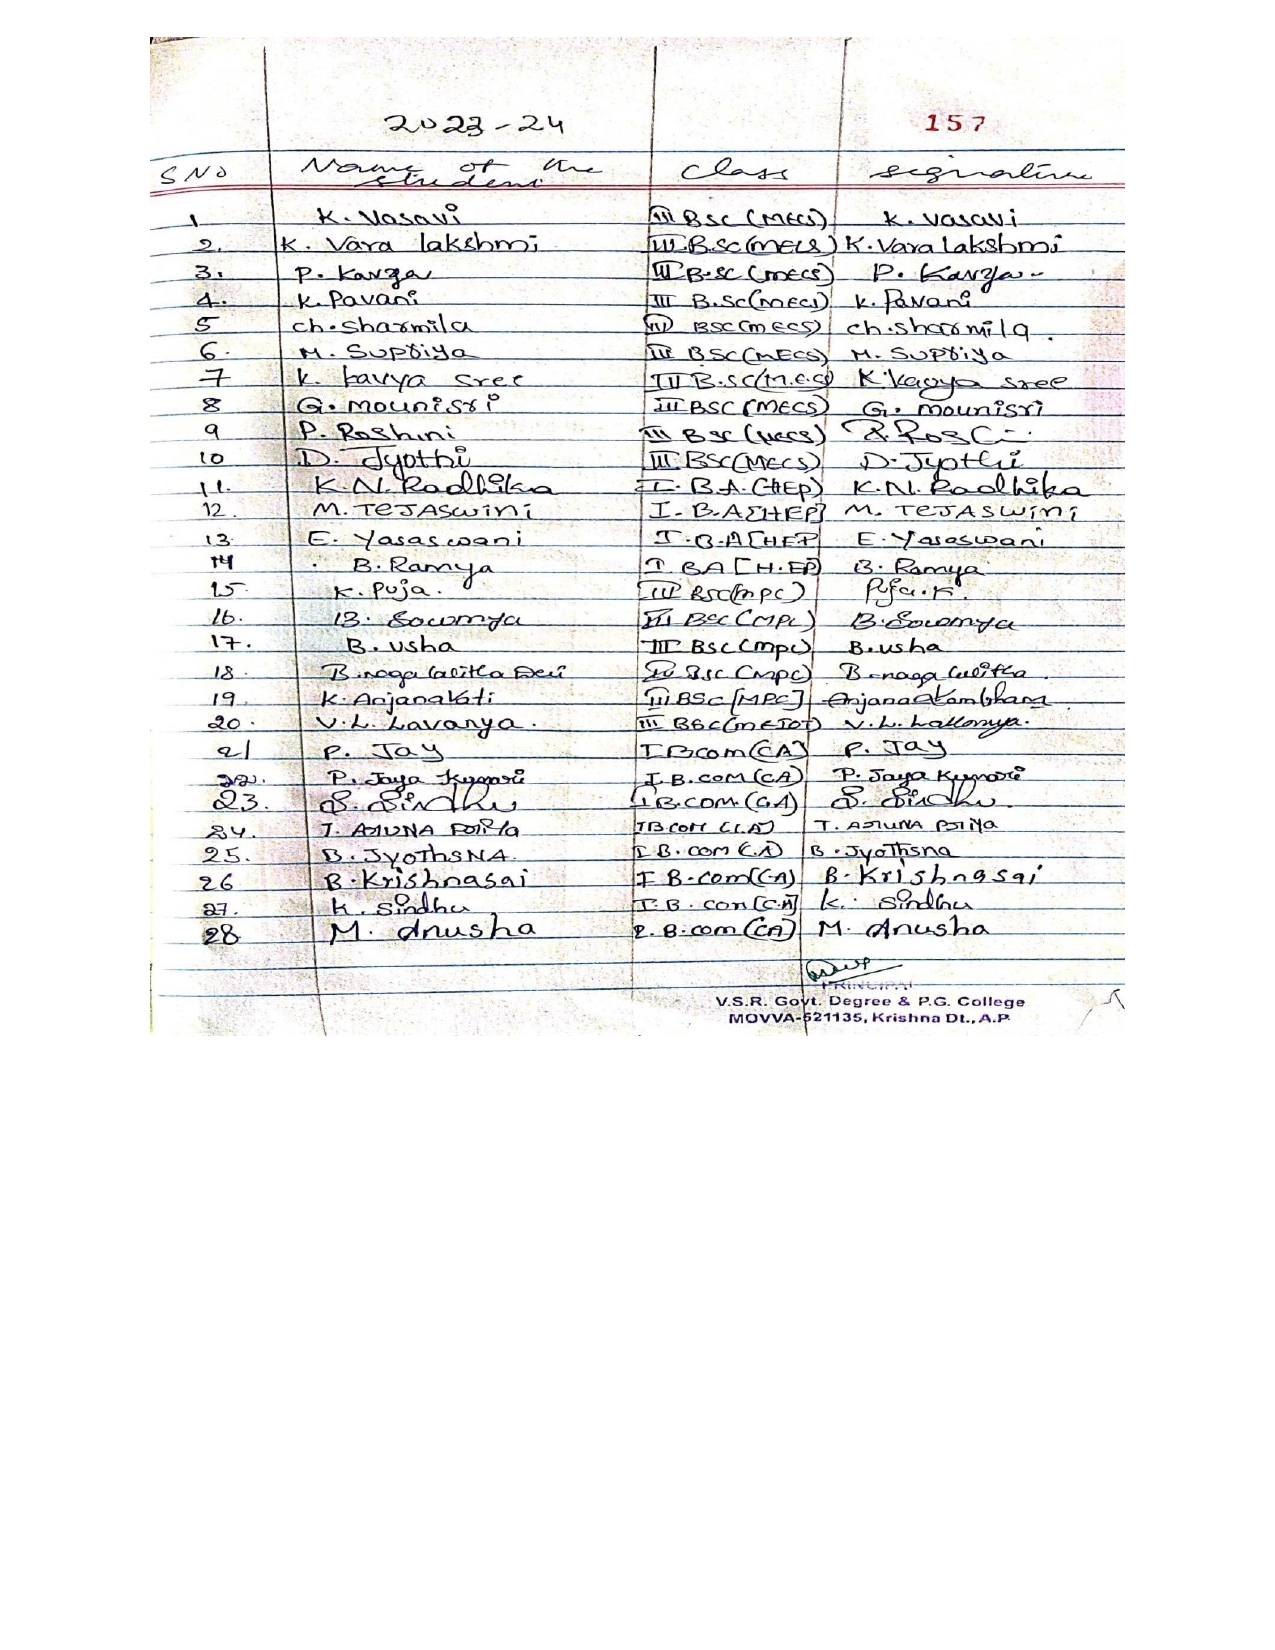 2023-24 157
S NO Name of the student class signature
1 K. Vasavi III BSC (MECS) K. vasavi
2. K. Vara lakshmi III B.SC (MECS) K. Vara lakshmi
3. P. Kavya III B.SC (MECS) P. Kavya
4. K. Pavani III B.SC (MECS) K. Pavani
5 ch. sharmila III BSC (MECS) ch. sharmila.
6. M. Supriya III BSC (MECS) M. Supriya
7 K. Kavya Sree III B.SC (M.E.CS) K. Kavya Sree
8 G. mounisri III BSC (MECS) G. mounisri
9 P. Roshini III BSC (MECS)
10 D. Jyothi III BSC (MECS) D. Jyothi
11. K.N. Radhika II. B.A. (HEP) K.N. Radhika
12. M. TEJASWini I. B.A [HEP] M. TEJASWini
13. E. Yasaswani I. B.A [HEP E. Yasaswani
14 B. Ramya I BA [H.EP] B. Ramya
15 K. Puja. III BSC (mpc) Puja. K.
16. B. Sowmya III BSC (MPC) B. Sowmya
17. B. usha III BSC (mpc) B. usha
18. B. naga lalitha Devi III BSC (MPC) B. naga lalitha
19. K. Anjanakati III BSC [MPC] Anjana
20. V.L. Lavanya. III BSC V.L. Lavanya.
21 P. Jay I Bcom (CA) P. Jay
22. P. Jaya Kumari I B.com (CA) P. Jaya Kumari
23. S. Sindhu I B.com. (CA) S. Sindhu.
24. T. ARUNA PRiYa I B COM (CA) T. ARUNA PRiYa
25. B. JyoThSNA. I B.com (CA) B. JyoThsna
26 B. Krishnasai I B.com (CA) B. Krishnasai
27. K. Sindhu I.B. con [CA] K. Sindhu
28 M. Anusha I. B.com (CA) M. Anusha
PRINCIPAL
V.S.R. Govt. Degree & P.G. College
MOVVA-521135, Krishna Dt., A.P.